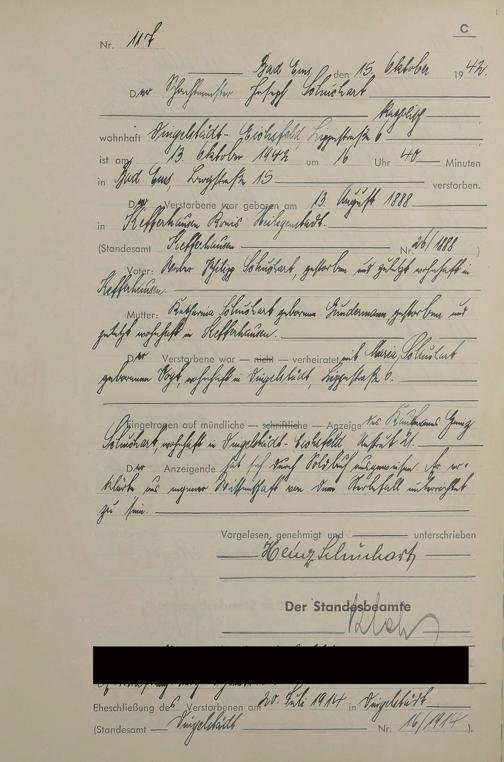 C
Nr. 117
Bad Ems, den 15. Oktober 1942.
Der Schachtmeister Joseph Schuchart
katholisch
wohnhaft Dingelstädt-Eichsfeld, Lippestraße 6
ist am 13. Oktober 1942 um 16 Uhr 40 Minuten
in Bad Ems, Bergstraße 15 verstorben.
Der Verstorbene war geboren am 13. August 1888
in Kefferhausen Kreis Heiligenstadt.
(Standesamt Kefferhausen Nr. 26/1888)
Vater: Philipp Schuchart, gestorben und zuletzt wohnhaft in
Kefferhausen
Mutter: Katharina Schuchart geborene Gundermann gestorben und
zuletzt wohnhaft in Kefferhausen.
Der Verstorbene war — nicht — verheiratet mit Maria Schuchart
geborenen Vogt, wohnhaft in Dingelstädt, Lippestraße 6.
Eingetragen auf mündliche — schriftliche — Anzeige des Kaufmanns Heinz
Schuchart, wohnhaft in Dingelstädt-Eichsfeld 21.
Der Anzeigende hat sich durch Soldbuch ausgewiesen. Er er-
klärte aus eigener Wissenschaft von dem Sterbefall unterrichtet
zu sein.
Vorgelesen, genehmigt und unterschrieben
Heinz Schuchart
Der Standesbeamte
Eheschließung des Verstorbenen am 20. Juli 1914 in Dingelstädt
(Standesamt Dingelstädt Nr. 16/1914).